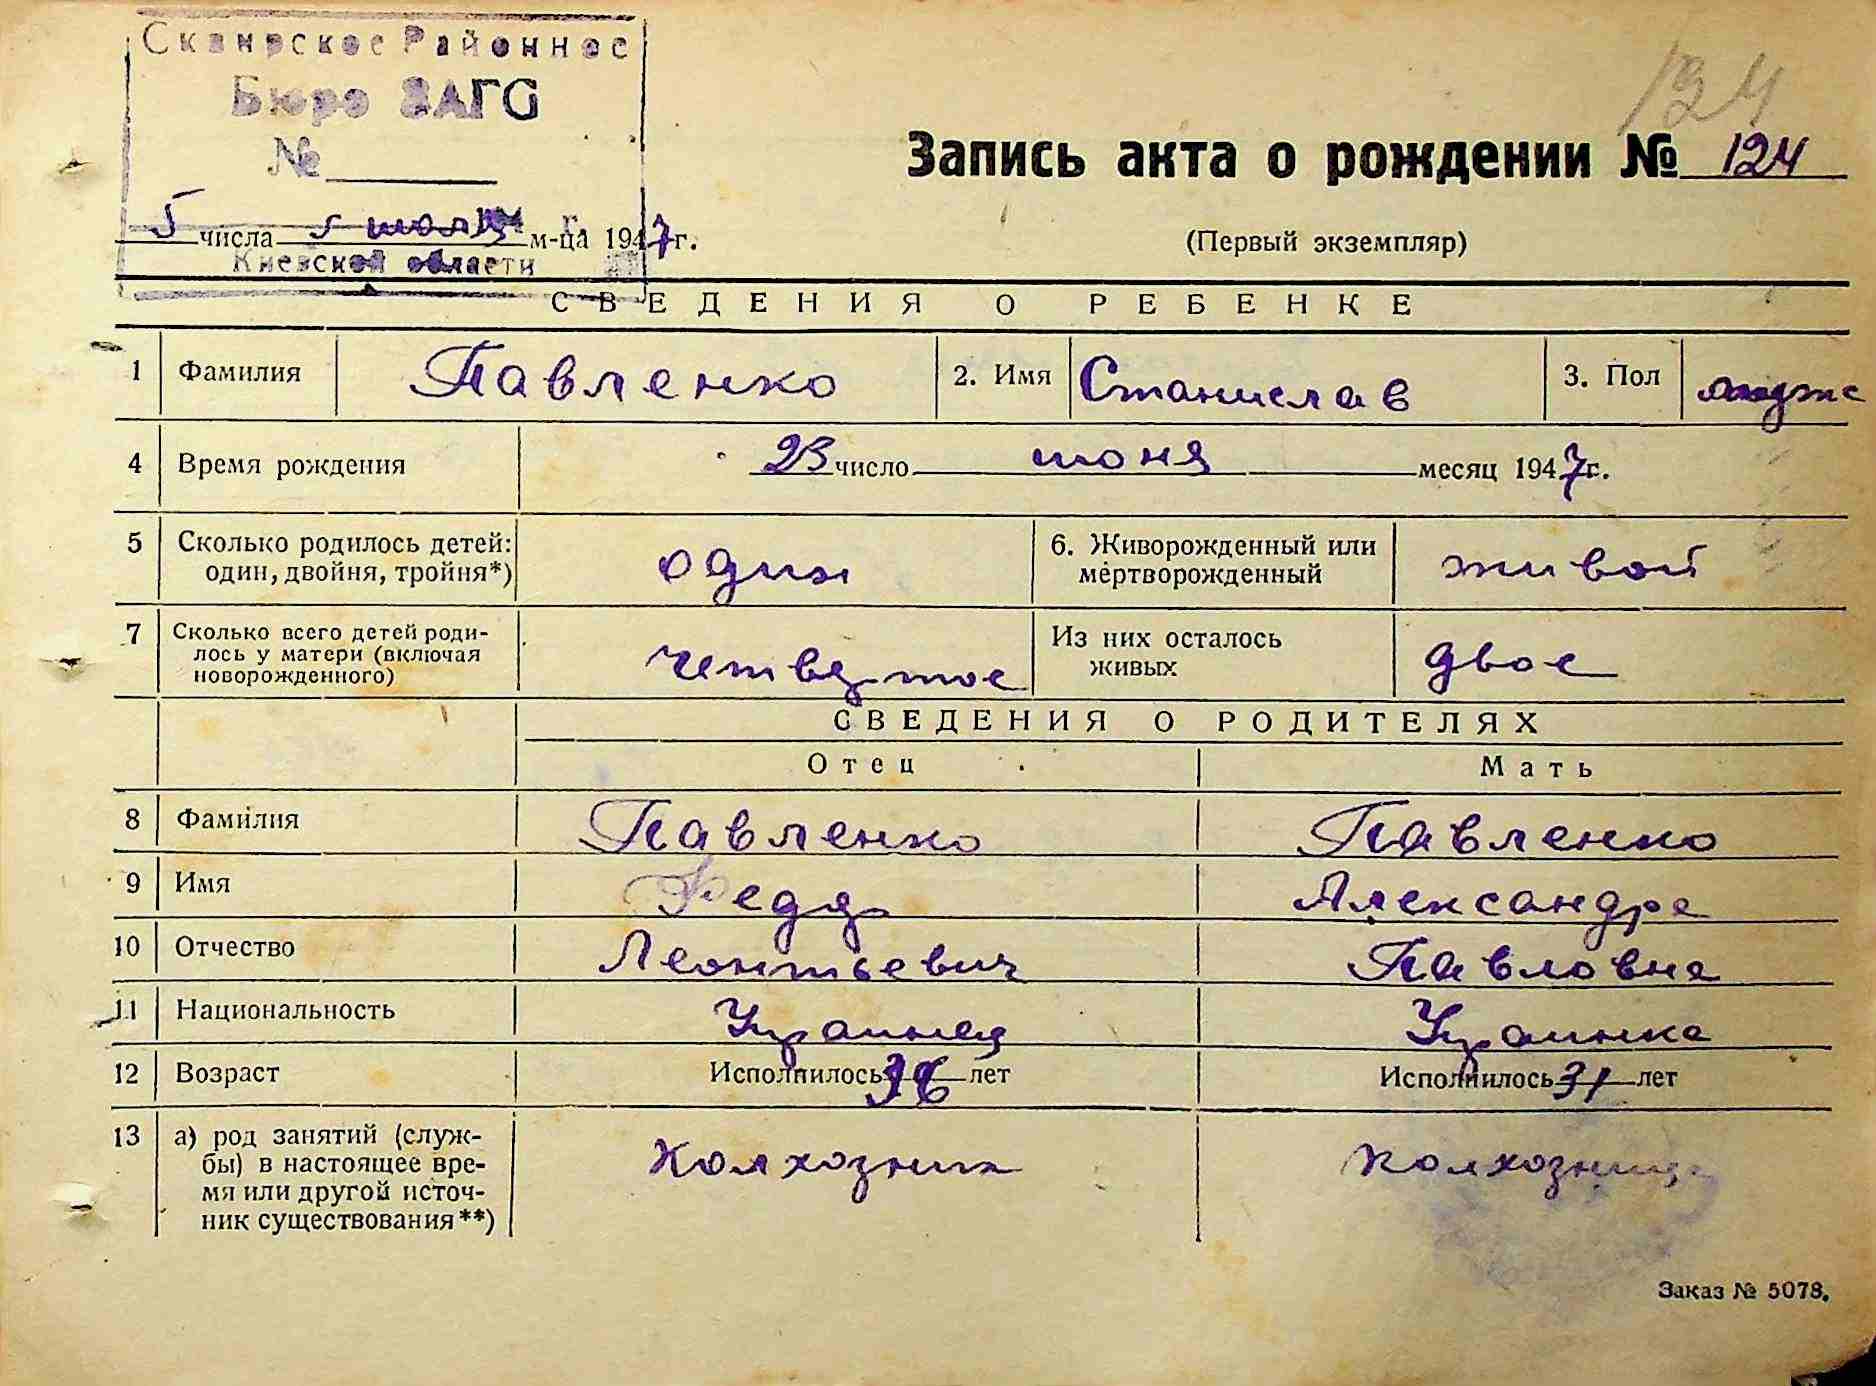 Сквирское Районное
Бюро ЗАГС
№
124
Запись акта о рождении № 124
5 числа июля м-ца 1947 г.
Киевской области
(Первый экземпляр)
СВЕДЕНИЯ О РЕБЕНКЕ
1 Фамилия Павленко 2. Имя Станислав 3. Пол мужс
4 Время рождения 23 число июня месяц 1947 г.
5 Сколько родилось детей: один, двойня, тройня*) один 6. Живорожденный или мёртворожденный живой
7 Сколько всего детей родилось у матери (включая новорожденного) четвертое Из них осталось живых двое
СВЕДЕНИЯ О РОДИТЕЛЯХ
Отец Мать
8 Фамилия Павленко Павленко
9 Имя Федор Александра
10 Отчество Леонтьевич Павловна
11 Национальность Украинец Украинка
12 Возраст Исполнилось 36 лет Исполнилось 31 лет
13 а) род занятий (службы) в настоящее время или другой источник существования**) Колхозник колхозница
Заказ № 5078.